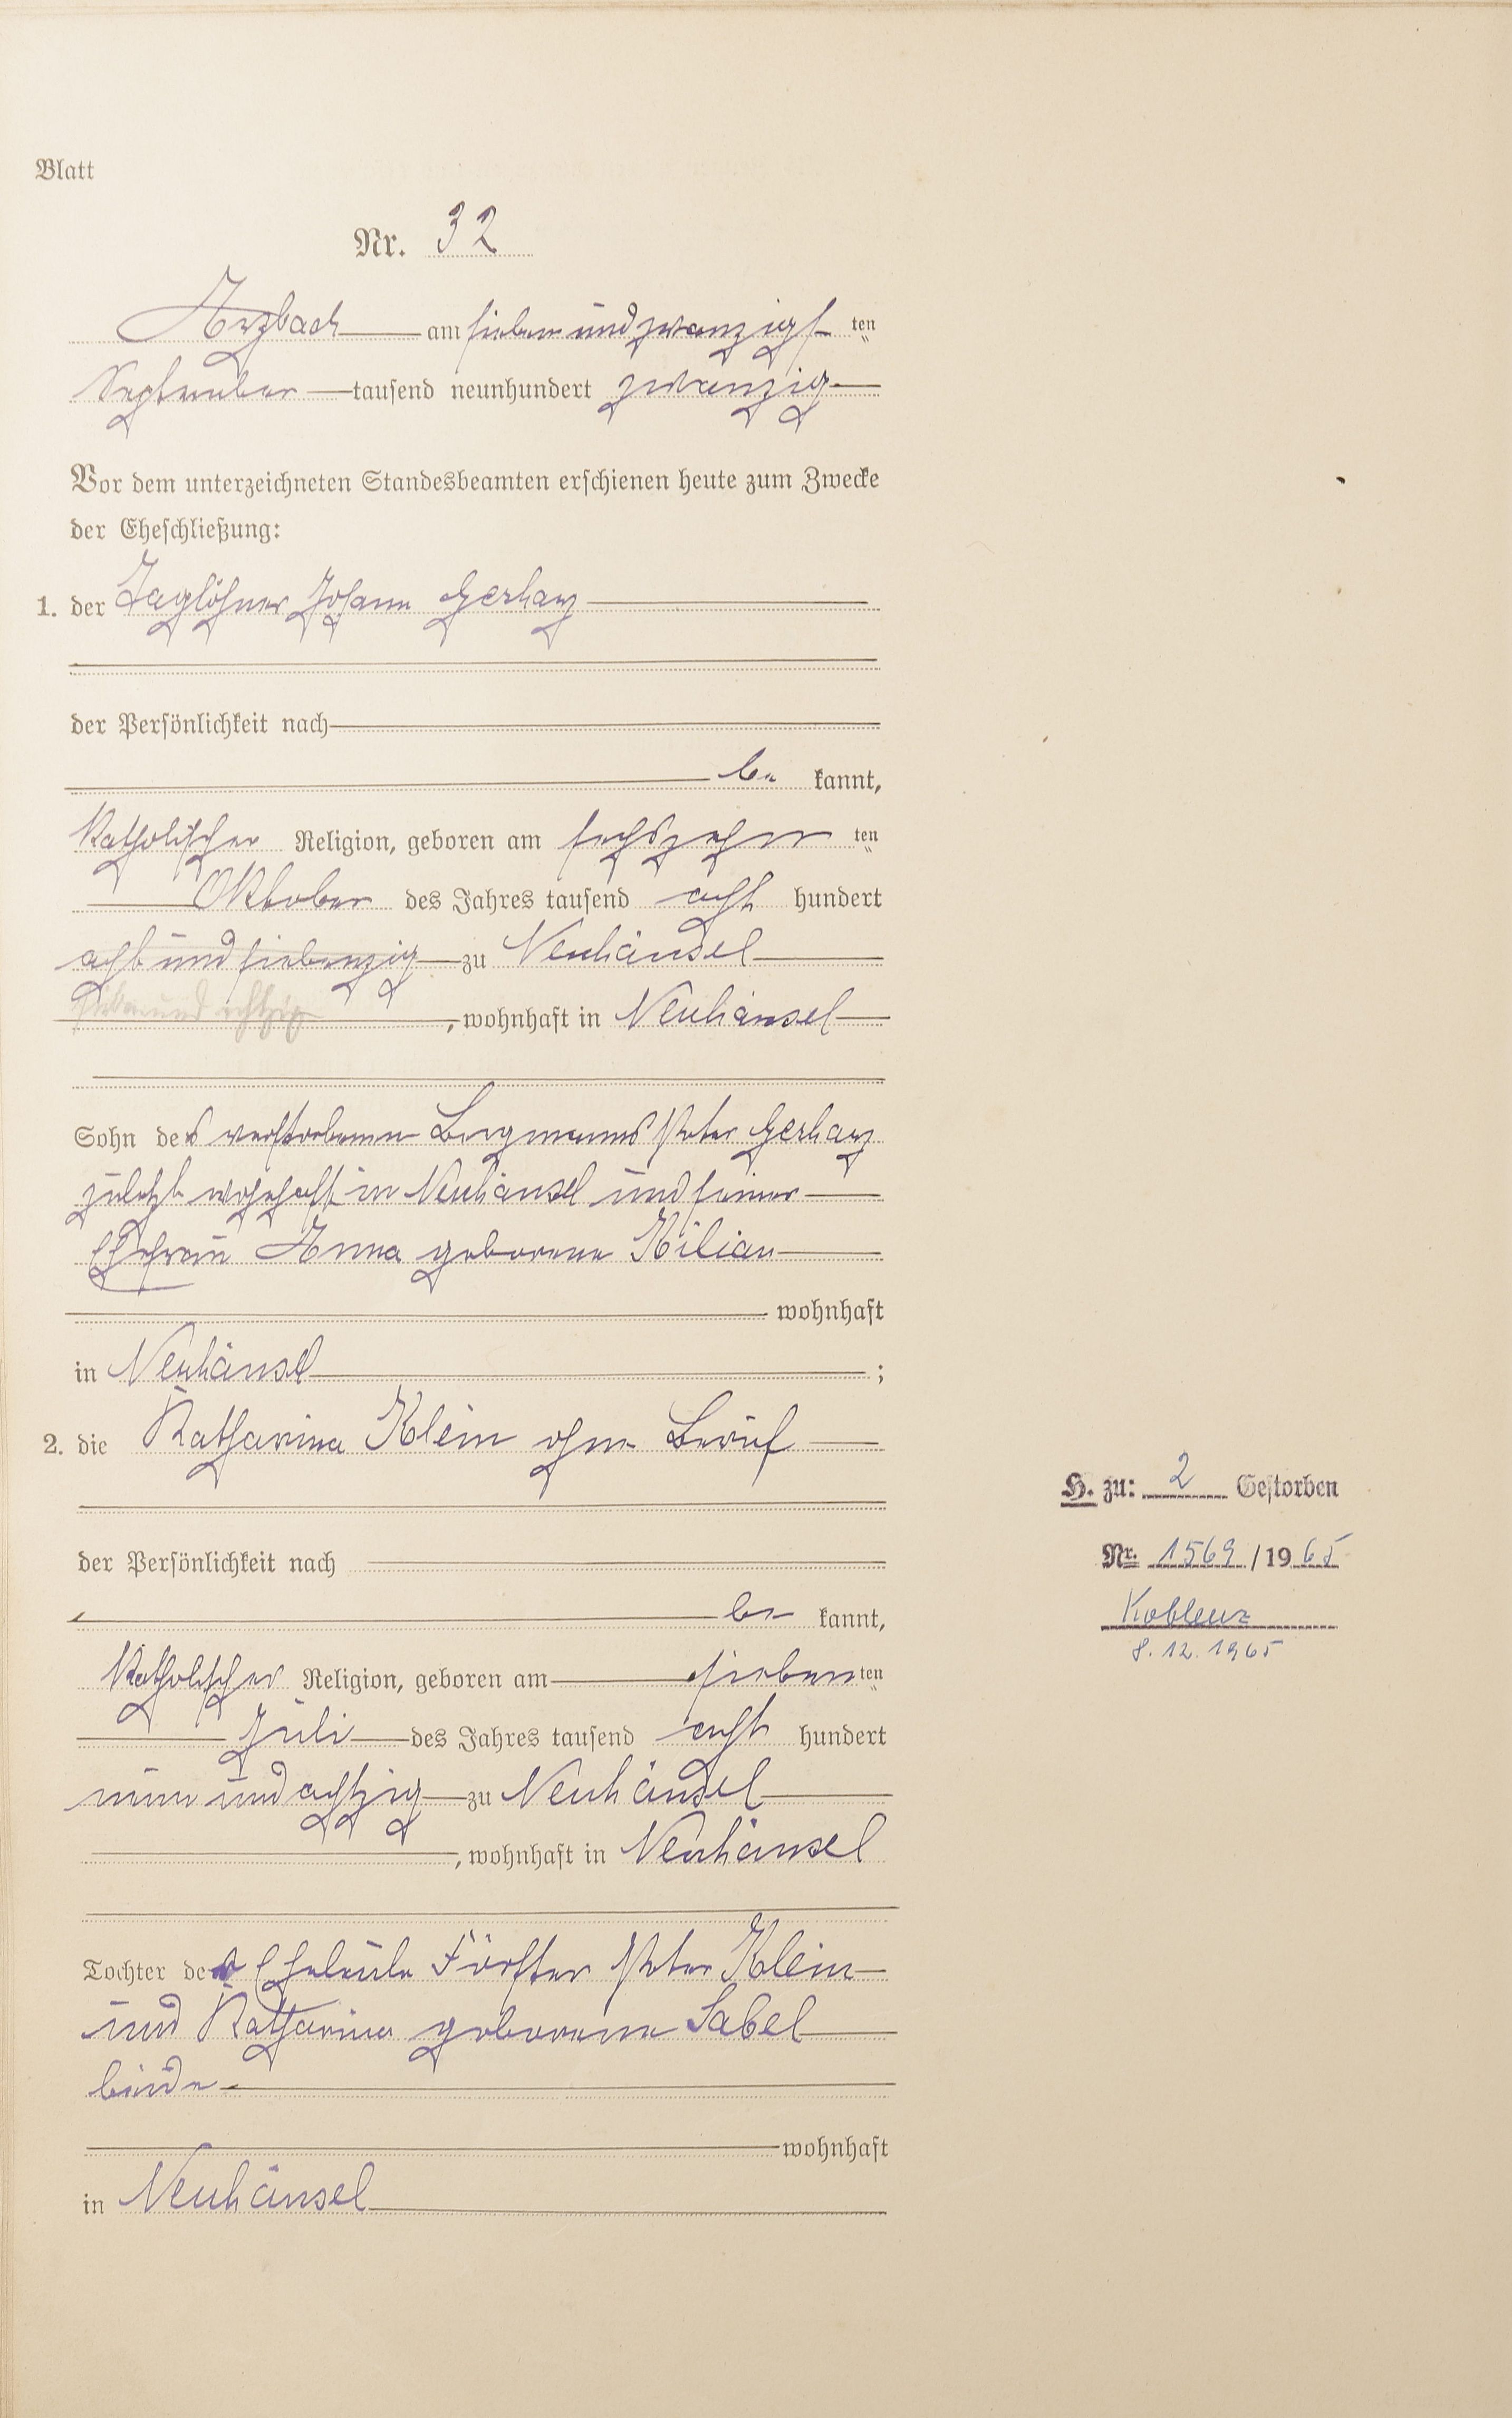 Blatt
Nr. 32
Arzbach am sieben und zwanzigsten
September tausend neunhundert zwanzig
Vor dem unterzeichneten Standesbeamten erschienen heute zum Zwecke
der Eheschließung:
1. der Taglöhner Johann Gerharz
der Persönlichkeit nach
be kannt,
katholischer Religion, geboren am sechszehn ten
Oktober des Jahres tausend acht hundert
acht und siebenzig zu Neuhäusel
siebenundachtzig, wohnhaft in Neuhäusel
Sohn des verstorbenen Bergmanns Peter Gerharz
zuletzt wohnhaft in Neuhäusel und seiner
Ehefrau Anna geborene Kilian
wohnhaft
in Neuhäusel ;
2. die Katharina Klein ohne Beruf
der Persönlichkeit nach
be kannt,
katholischer Religion, geboren am sieben ten
Juli des Jahres tausend acht hundert
neun und achtzig zu Neuhäusel
, wohnhaft in Neuhäusel
Tochter der Eheleute Förster Peter Klein
und Katharina geborene Sabel
beide
wohnhaft
in Neuhäusel
H. zu: 2 Gestorben
Nr. 1569 / 1965
Koblenz
8.12.1965